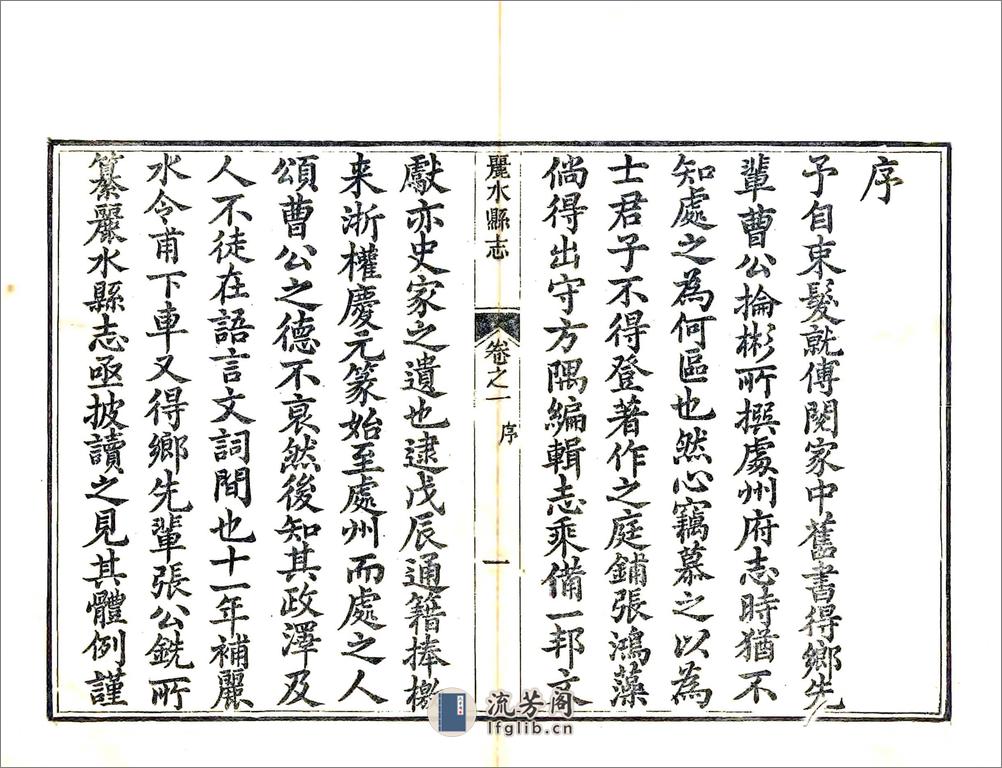 序
予自束髮就傅閱家中舊書得鄉先
輩曹公掄彬所撰處州府志時猶不
知處之為何區也然心竊慕之以為
士君子不得登著作之庭鋪張鴻藻
倘得出守方隅編輯志乘備一邦文
麗水縣志 卷之一 序 一
獻亦史家之遺也逮戊辰通籍捧檄
来浙權慶元篆始至處州而處之人
頌曹公之德不衰然後知其政澤及
人不徒在語言文詞間也十一年補麗
水令甫下車又得鄉先輩張公銑所
纂麗水縣志亟披讀之見其體例謹
流芳阁
lfglib.cn